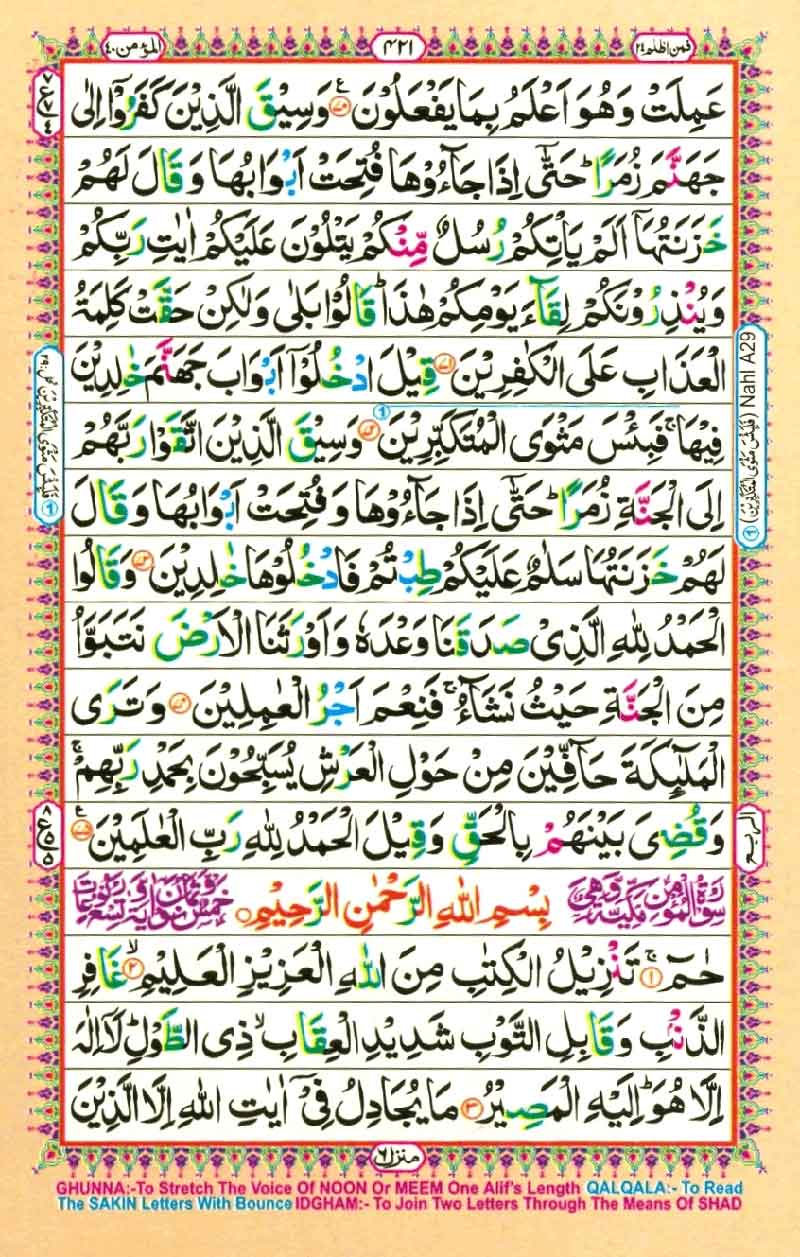 فمن اظلم ۲۴
۴۲۱
المؤمن ۴۰
عَمِلَتْ وَهُوَ اَعْلَمُ بِمَا يَفْعَلُوْنَ ﴿۷۰﴾ وَسِيْقَ الَّذِيْنَ كَفَرُوْۤا اِلٰى
جَهَنَّمَ زُمَرًا ؕ حَتّٰۤى اِذَا جَآءُوْهَا فُتِحَتْ اَبْوَابُهَا وَقَالَ لَهُمْ
خَزَنَتُهَاۤ اَلَمْ يَاْتِكُمْ رُسُلٌ مِّنْكُمْ يَتْلُوْنَ عَلَيْكُمْ اٰيٰتِ رَبِّكُمْ
وَيُنْذِرُوْنَكُمْ لِقَآءَ يَوْمِكُمْ هٰذَا ؕ قَالُوْا بَلٰى وَلٰكِنْ حَقَّتْ كَلِمَةُ
الْعَذَابِ عَلَى الْكٰفِرِيْنَ ﴿۷۱﴾ قِيْلَ ادْخُلُوْۤا اَبْوَابَ جَهَنَّمَ خٰلِدِيْنَ
فِيْهَا ۚ فَبِئْسَ مَثْوَى الْمُتَكَبِّرِيْنَ ﴿۷۲﴾ وَسِيْقَ الَّذِيْنَ اتَّقَوْا رَبَّهُمْ
اِلَى الْجَنَّةِ زُمَرًا ؕ حَتّٰۤى اِذَا جَآءُوْهَا وَفُتِحَتْ اَبْوَابُهَا وَقَالَ
لَهُمْ خَزَنَتُهَا سَلٰمٌ عَلَيْكُمْ طِبْتُمْ فَادْخُلُوْهَا خٰلِدِيْنَ ﴿۷۳﴾ وَقَالُوا
الْحَمْدُ لِلّٰهِ الَّذِيْ صَدَقَنَا وَعْدَهٗ وَاَوْرَثَنَا الْاَرْضَ نَتَبَوَّاُ
مِنَ الْجَنَّةِ حَيْثُ نَشَآءُ ۚ فَنِعْمَ اَجْرُ الْعٰمِلِيْنَ ﴿۷۴﴾ وَتَرَى
الْمَلٰٓئِكَةَ حَآفِّيْنَ مِنْ حَوْلِ الْعَرْشِ يُسَبِّحُوْنَ بِحَمْدِ رَبِّهِمْ ۚ
وَقُضِيَ بَيْنَهُمْ بِالْحَقِّ وَقِيْلَ الْحَمْدُ لِلّٰهِ رَبِّ الْعٰلَمِيْنَ ﴿۷۵﴾
سورة المؤمن مكية وهي بِسْمِ اللهِ الرَّحْمٰنِ الرَّحِيْمِ خمس وثمانون اية وتسع ركوعات
حٰمٓ ۚ ﴿۱﴾ تَنْزِيْلُ الْكِتٰبِ مِنَ اللهِ الْعَزِيْزِ الْعَلِيْمِ ۙ ﴿۲﴾ غَافِرِ
الذَّنْۢبِ وَقَابِلِ التَّوْبِ شَدِيْدِ الْعِقَابِ ۙ ذِى الطَّوْلِ ؕ لَاۤ اِلٰهَ
اِلَّا هُوَ ؕ اِلَيْهِ الْمَصِيْرُ ﴿۳﴾ مَا يُجَادِلُ فِيْۤ اٰيٰتِ اللهِ اِلَّا الَّذِيْنَ
Nahl A29
الربع
منزل ۶
GHUNNA:-To Stretch The Voice Of NOON Or MEEM One Alif's Length QALQALA:- To Read
The SAKIN Letters With Bounce IDGHAM:- To Join Two Letters Through The Means Of SHAD